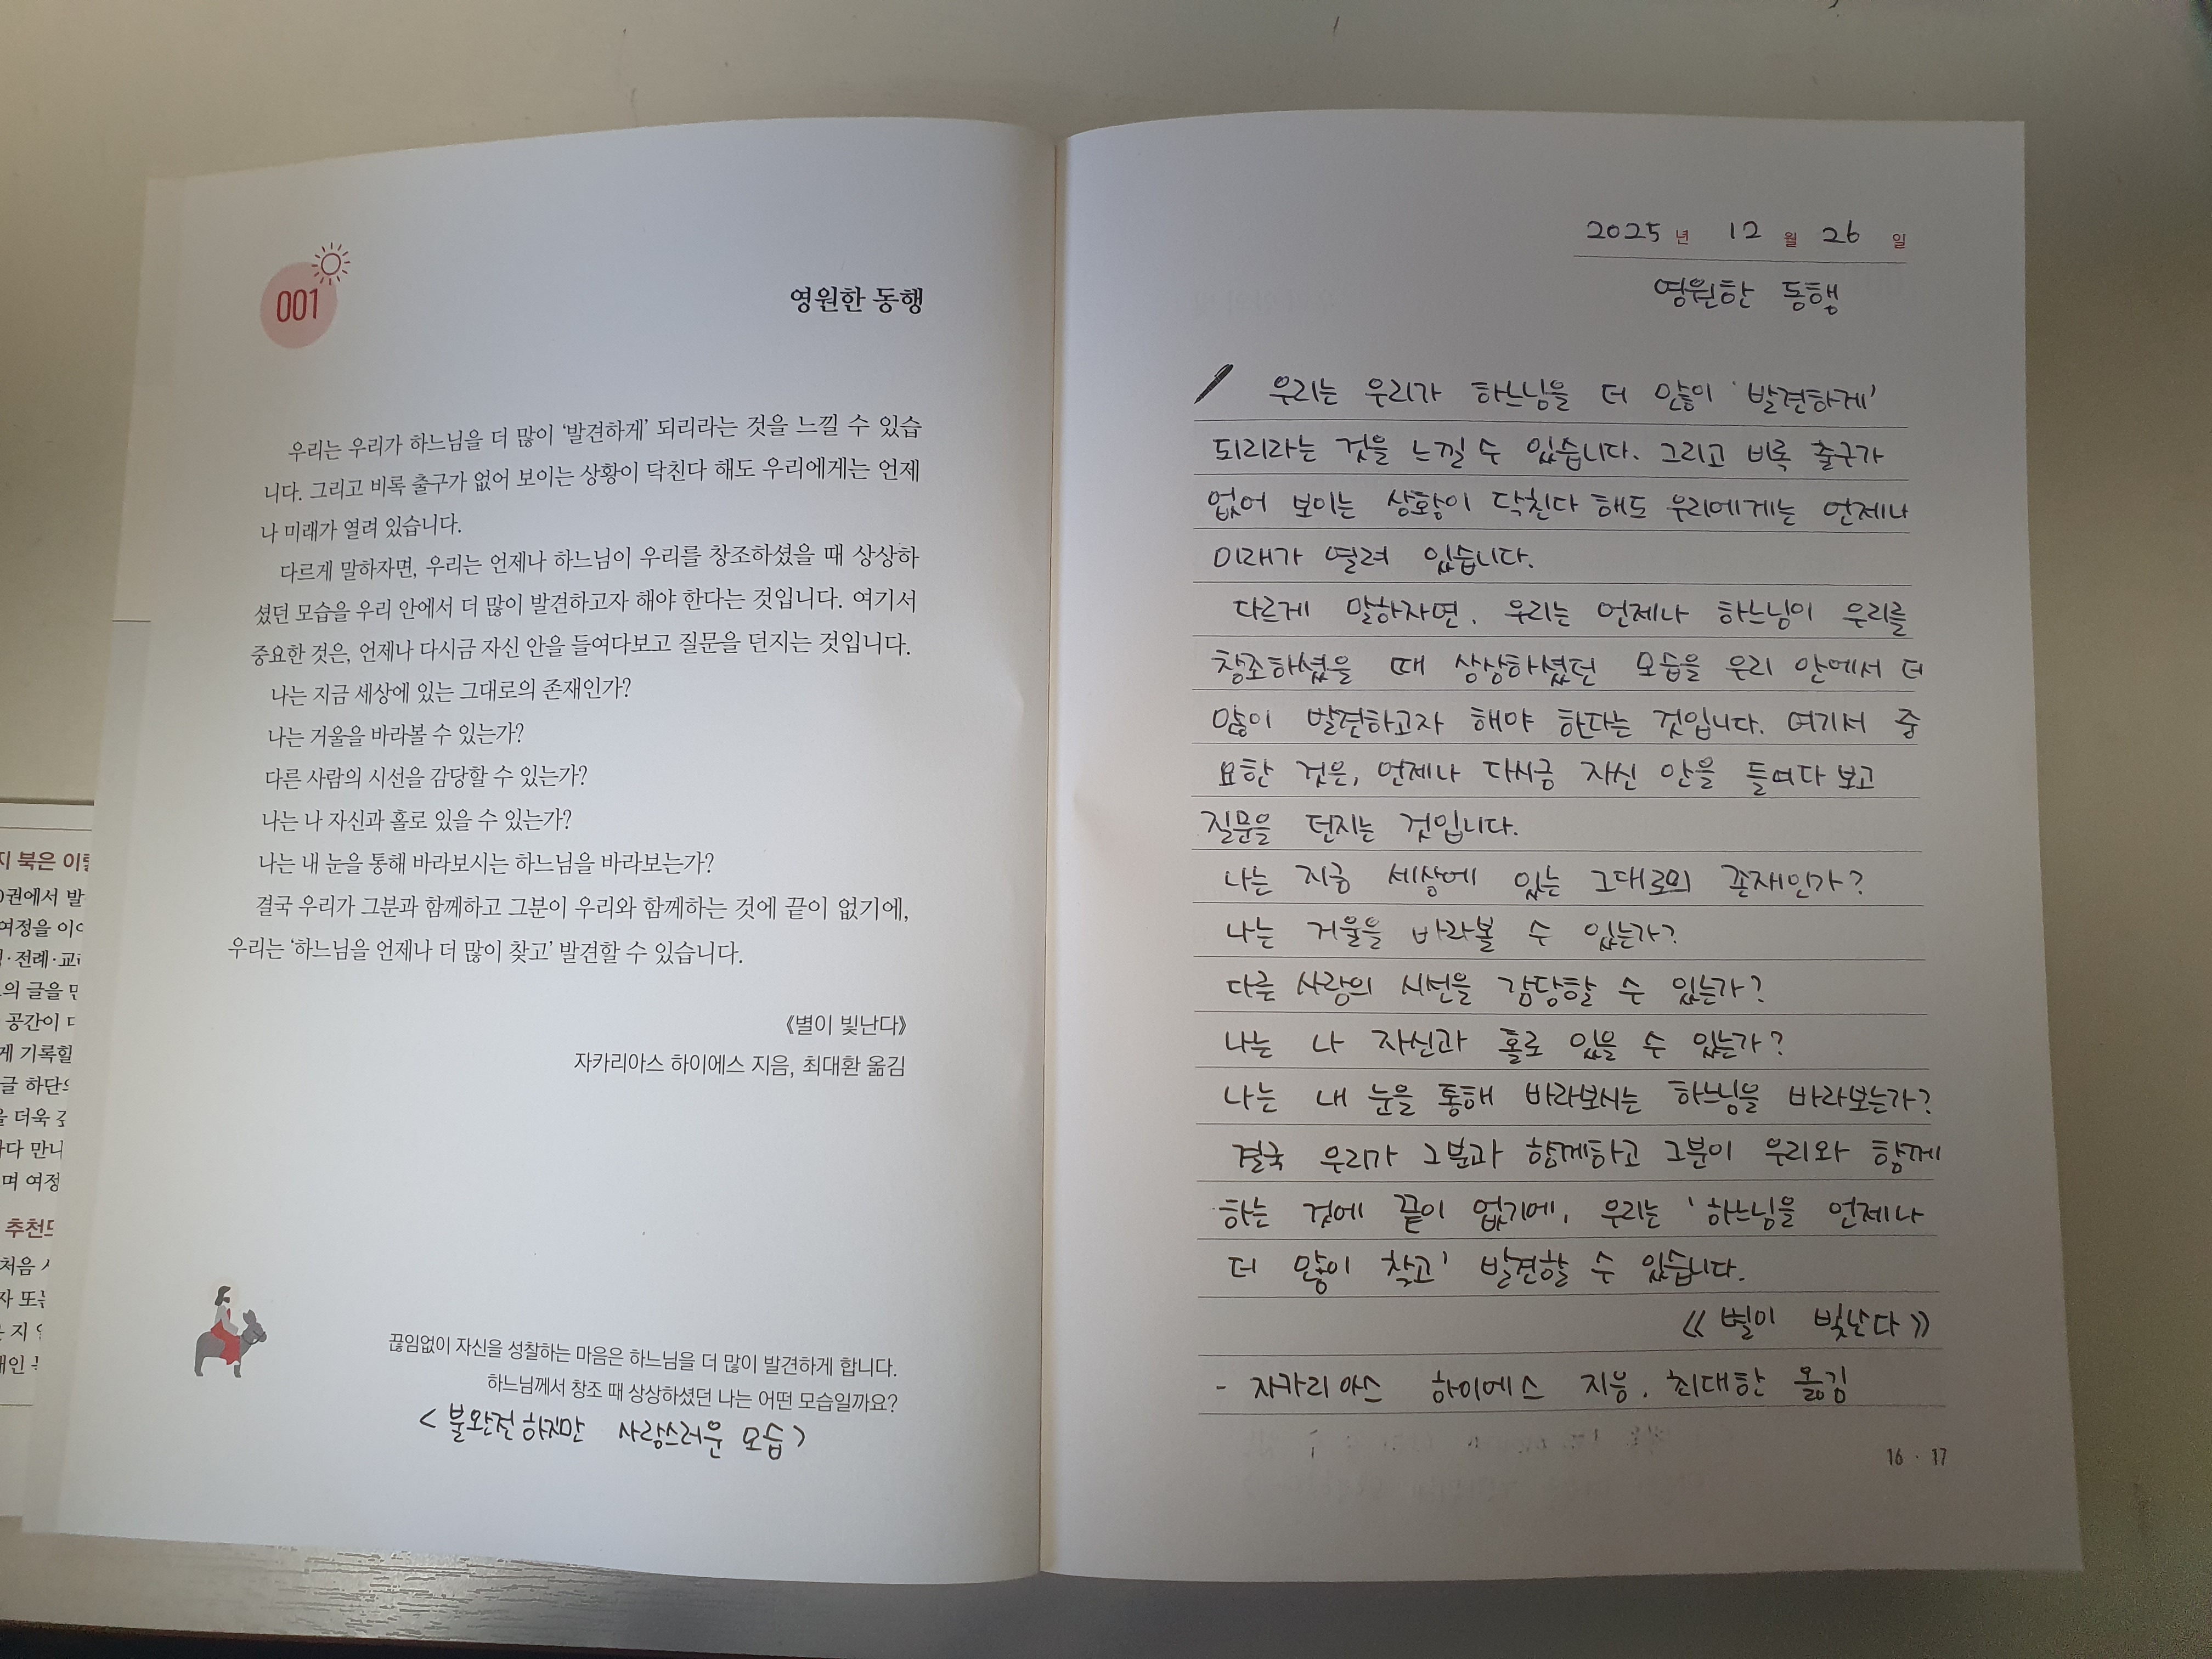 지 북은
권에서
여정을
전례·교
의 글을
공간이
게 기록할
글 하단
더욱
다 만나
며 여정
추천
처음
자 또는
지
001
영원한 동행
우리는 우리가 하느님을 더 많이 ‘발견하게’ 되리라는 것을 느낄 수 있습
니다. 그리고 비록 출구가 없어 보이는 상황이 닥친다 해도 우리에게는 언제
나 미래가 열려 있습니다.
다르게 말하자면, 우리는 언제나 하느님이 우리를 창조하셨을 때 상상하
셨던 모습을 우리 안에서 더 많이 발견하고자 해야 한다는 것입니다. 여기서
중요한 것은, 언제나 다시금 자신 안을 들여다보고 질문을 던지는 것입니다.
나는 지금 세상에 있는 그대로의 존재인가?
나는 거울을 바라볼 수 있는가?
다른 사람의 시선을 감당할 수 있는가?
나는 나 자신과 홀로 있을 수 있는가?
나는 내 눈을 통해 바라보시는 하느님을 바라보는가?
결국 우리가 그분과 함께하고 그분이 우리와 함께하는 것에 끝이 없기에,
우리는 ‘하느님을 언제나 더 많이 찾고’ 발견할 수 있습니다.
《별이 빛난다》
자카리아스 하이에스 지음, 최대환 옮김
끊임없이 자신을 성찰하는 마음은 하느님을 더 많이 발견하게 합니다.
하느님께서 창조 때 상상하셨던 나는 어떤 모습일까요?
< 불완전 하지만 사랑스러운 모습 >
2025년 12월 26일
영원한 동행
우리는 우리가 하느님을 더 많이 ‘발견하게’
되리라는 것을 느낄 수 있습니다. 그리고 비록 출구가
없어 보이는 상황이 닥친다 해도 우리에게는 언제나
미래가 열려 있습니다.
다르게 말하자면, 우리는 언제나 하느님이 우리를
창조하셨을 때 상상하셨던 모습을 우리 안에서 더
많이 발견하고자 해야 한다는 것입니다. 여기서 중
요한 것은, 언제나 다시금 자신 안을 들여다 보고
질문을 던지는 것입니다.
나는 지금 세상에 있는 그대로의 존재인가?
나는 거울을 바라볼 수 있는가?
다른 사람의 시선을 감당할 수 있는가?
나는 나 자신과 홀로 있을 수 있는가?
나는 내 눈을 통해 바라보시는 하느님을 바라보는가?
결국 우리가 그분과 함께하고 그분이 우리와 함께
하는 것에 끝이 없기에, 우리는 ‘하느님을 언제나
더 많이 찾고’ 발견할 수 있습니다.
《별이 빛난다》
- 자카리아스 하이에스 지음, 최대환 옮김
16 · 17